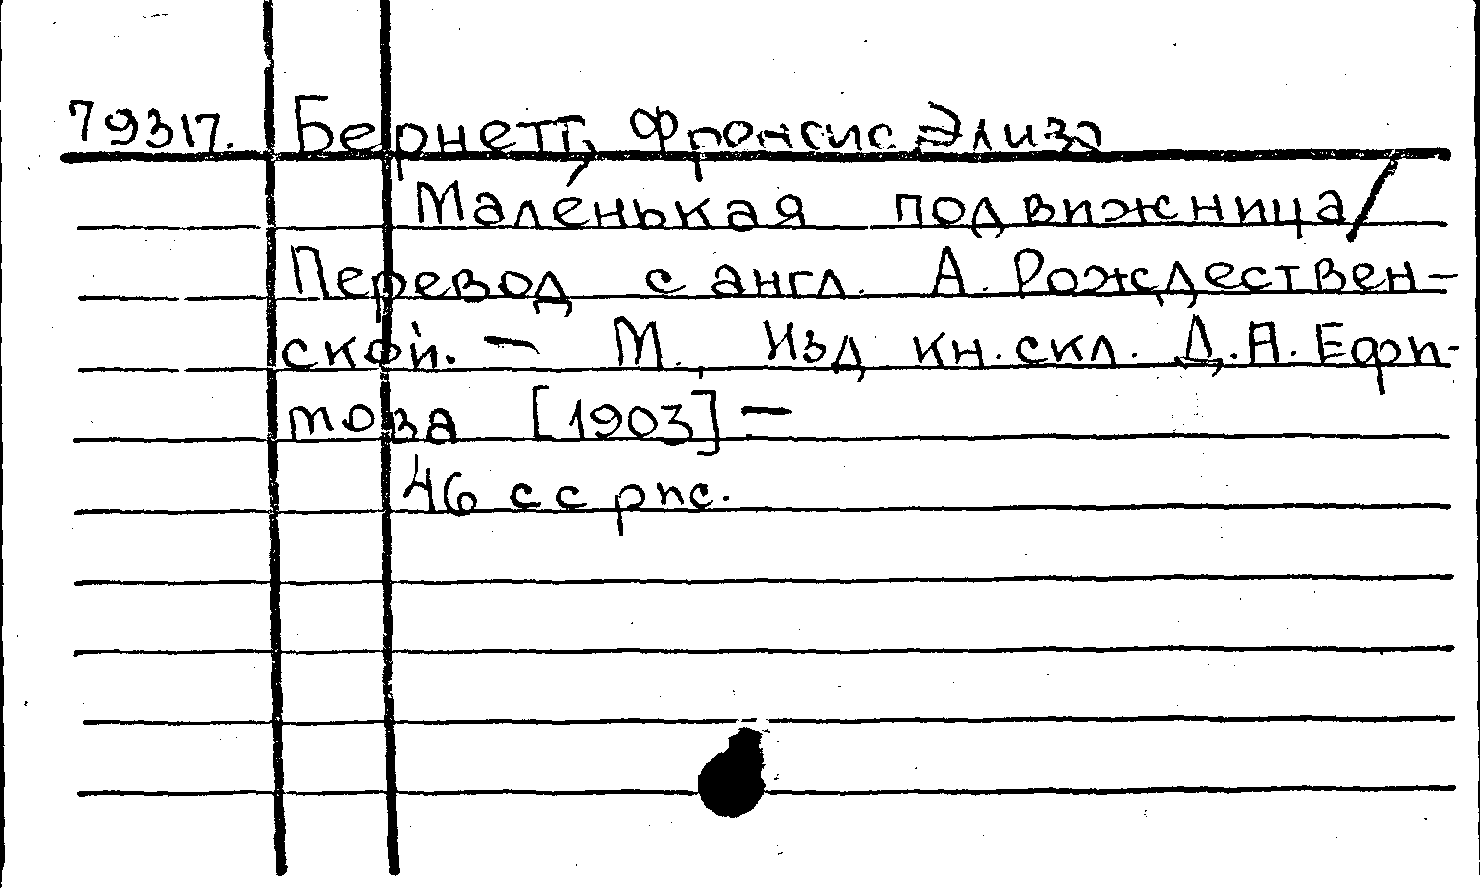 79317. Бернетт, Фрэнсис Элиза
Маленькая подвижница /
Перевод с англ. А. Рождествен-
ской. — М. Изд кн. скл. Д.А. Ефи-
мова [1903] —
46 с с рис.